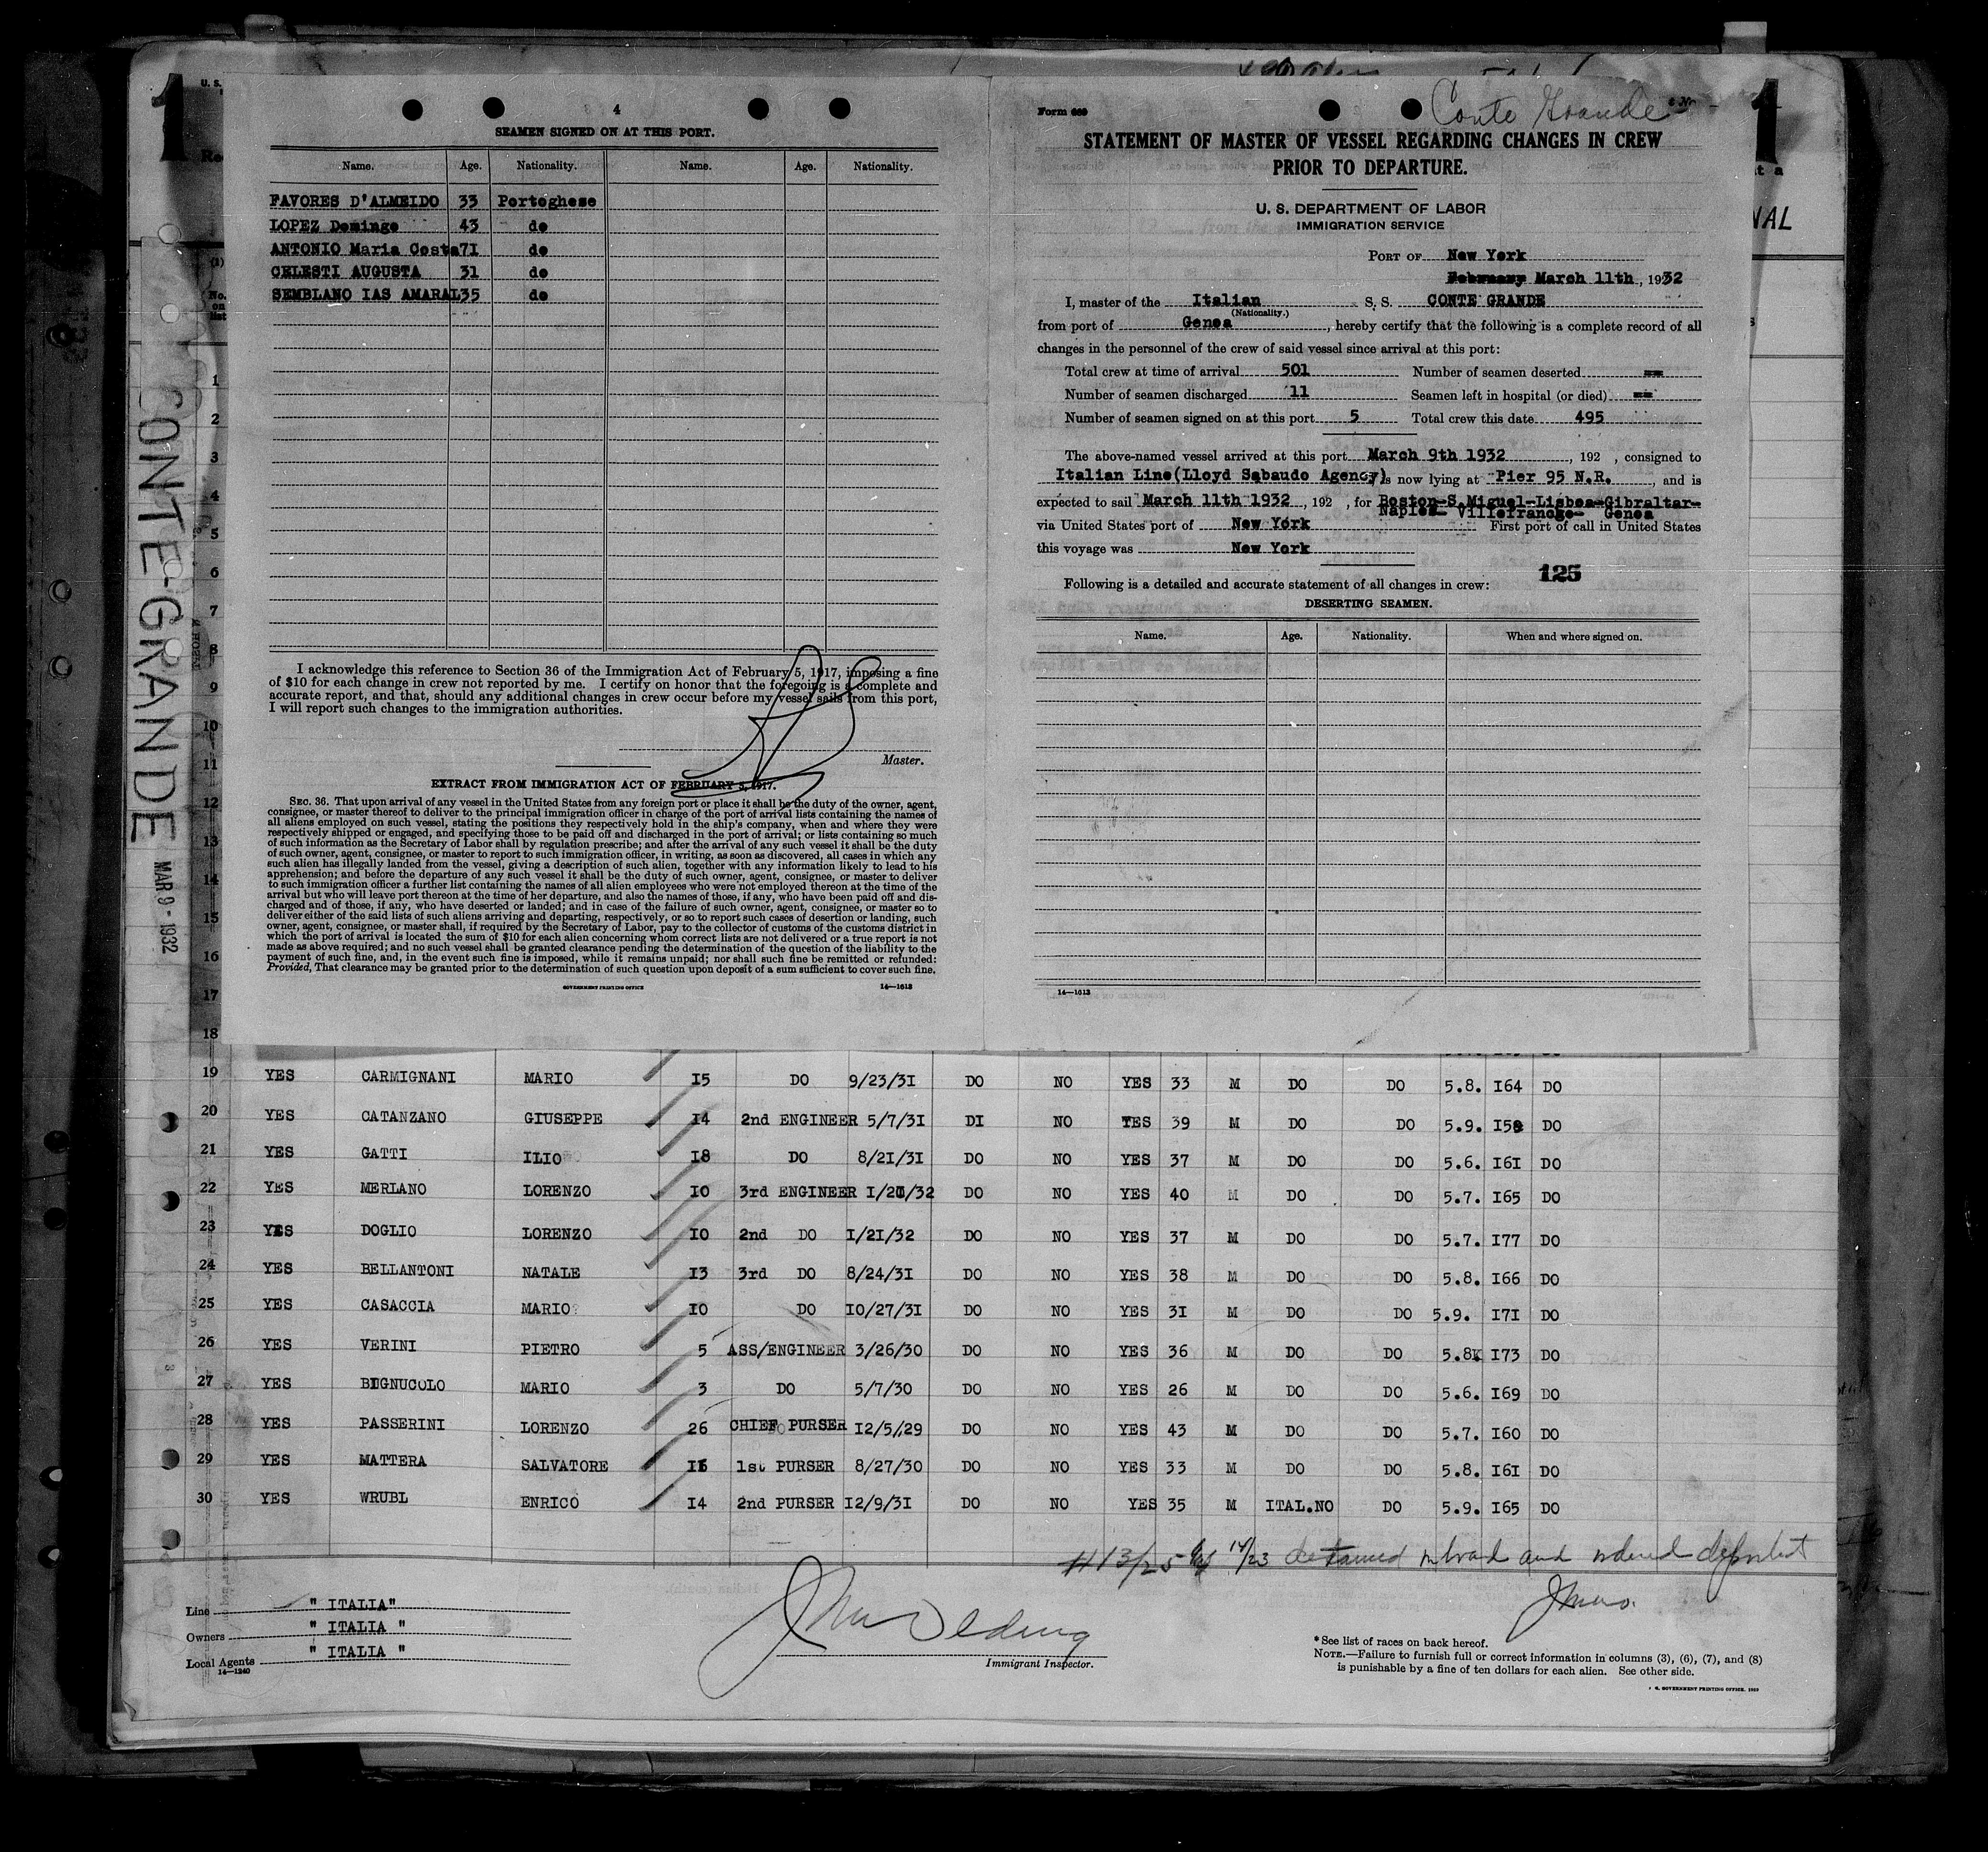 1
U. S.
4
SEAMEN SIGNED ON AT THIS PORT.
Name. Age. Nationality. Name. Age. Nationality.
FAVORES D'ALMEIDO 33 Portoghese
LOPEZ Domingo 43 do
ANTONIO Maria Costa 71 do
CELESTI AUGUSTA 31 do
SEMBLANO IAS AMARAL 35 do
I acknowledge this reference to Section 36 of the Immigration Act of February 5, 1917, imposing a fine
of $10 for each change in crew not reported by me. I certify on honor that the foregoing is a complete and
accurate report, and that, should any additional changes in crew occur before my vessel sails from this port,
I will report such changes to the immigration authorities.
Master.
EXTRACT FROM IMMIGRATION ACT OF FEBRUARY 5, 1917.
SEC. 36. That upon arrival of any vessel in the United States from any foreign port or place it shall be the duty of the owner, agent,
consignee, or master thereof to deliver to the principal immigration officer in charge of the port of arrival lists containing the names of
all aliens employed on such vessel, stating the positions they respectively hold in the ship's company, when and where they were
respectively shipped or engaged, and specifying those to be paid off and discharged in the port of arrival; or lists containing so much
of such information as the Secretary of Labor shall by regulation prescribe; and after the arrival of any such vessel it shall be the duty
of such owner, agent, consignee, or master to report to such immigration officer, in writing, as soon as discovered, all cases in which any
such alien has illegally landed from the vessel, giving a description of such alien, together with any information likely to lead to his
apprehension; and before the departure of any such vessel it shall be the duty of such owner, agent, consignee, or master to deliver
to such immigration officer a further list containing the names of all alien employees who were not employed thereon at the time of the
arrival but who will leave port thereon at the time of her departure, and also the names of those, if any, who have been paid off and dis-
charged and of those, if any, who have deserted or landed; and in case of the failure of such owner, agent, consignee, or master so to
deliver either of the said lists of such aliens arriving and departing, respectively, or so to report such cases of desertion or landing, such
owner, agent, consignee, or master shall, if required by the Secretary of Labor, pay to the collector of customs of the customs district in
which the port of arrival is located the sum of $10 for each alien concerning whom correct lists are not delivered or a true report is not
made as above required; and no such vessel shall be granted clearance pending the determination of the question of the liability to the
payment of such fine, and, in the event such fine is imposed, while it remains unpaid; nor shall such fine be remitted or refunded:
Provided, That clearance may be granted prior to the determination of such question upon deposit of a sum sufficient to cover such fine.
GOVERNMENT PRINTING OFFICE 14—1613
Form 689
Conte Grande
1
STATEMENT OF MASTER OF VESSEL REGARDING CHANGES IN CREW
PRIOR TO DEPARTURE.
U. S. DEPARTMENT OF LABOR
IMMIGRATION SERVICE
PORT OF New York
March 11th, 1932
I, master of the Italian S. S. CONTE GRANDE
(Nationality.)
from port of Genoa, hereby certify that the following is a complete record of all
changes in the personnel of the crew of said vessel since arrival at this port:
Total crew at time of arrival 501 Number of seamen deserted ==
Number of seamen discharged 11 Seamen left in hospital (or died) ==
Number of seamen signed on at this port 5 Total crew this date 495
The above-named vessel arrived at this port March 9th 1932, 192 , consigned to
Italian Line(Lloyd Sabaudo Agency) is now lying at Pier 95 N.R., and is
expected to sail March 11th 1932, 192 , for Boston-S.Miguel-Lisboa-Gibraltar-
Naples- Villefranche- Genoa
via United States port of New York First port of call in United States
this voyage was New York
125
Following is a detailed and accurate statement of all changes in crew:
DESERTING SEAMEN.
Name. Age. Nationality. When and where signed on.
14—1613
CONTE-GRANDE
MAR 9 - 1932
1
2
3
4
5
6
7
8
9
10
11
12
13
14
15
16
17
18
19 YES CARMIGNANI MARIO I5 DO 9/23/31 DO NO YES 33 M DO DO 5.8. I64 DO
20 YES CATANZANO GIUSEPPE I4 2nd ENGINEER 5/7/3I DI NO YES 39 M DO DO 5.9. DO
21 YES GATTI ILIO I8 DO 8/2I/3I DO NO YES 37 M DO DO 5.6. I6I DO
22 YES MERLANO LORENZO I0 3rd ENGINEER DO NO YES 40 M DO DO 5.7. I65 DO
23 YES DOGLIO LORENZO I0 2nd DO I/2I/32 DO NO YES 37 M DO DO 5.7. I77 DO
24 YES BELLANTONI NATALE I3 3rd DO 8/24/3I DO NO YES 38 M DO DO 5.8. I66 DO
25 YES CASACCIA MARIO I0 DO I0/27/3I DO NO YES 3I M DO DO 5.9. I7I DO
26 YES VERINI PIETRO 5 ASS/ENGINEER 3/26/30 DO NO YES 36 M DO DO 5.8 I73 DO
27 YES BIGNUCOLO MARIO 3 DO 5/7/30 DO NO YES 26 M DO DO 5.6. I69 DO
28 YES PASSERINI LORENZO 26 CHIEF PURSER I2/5/29 DO NO YES 43 M DO DO 5.7. I60 DO
29 YES MATTERA SALVATORE 1st PURSER 8/27/30 DO NO YES 33 M DO DO 5.8. I6I DO
30 YES WRUBL ENRICO I4 2nd PURSER I2/9/3I DO NO YES 35 M ITAL.NO DO 5.9. I65 DO
detained on board and ordered deported
Line " ITALIA"
Owners " ITALIA "
Local Agents " ITALIA "
14—1240
Immigrant Inspector.
* See list of races on back hereof.
NOTE.—Failure to furnish full or correct information in columns (3), (6), (7), and (8)
is punishable by a fine of ten dollars for each alien. See other side.